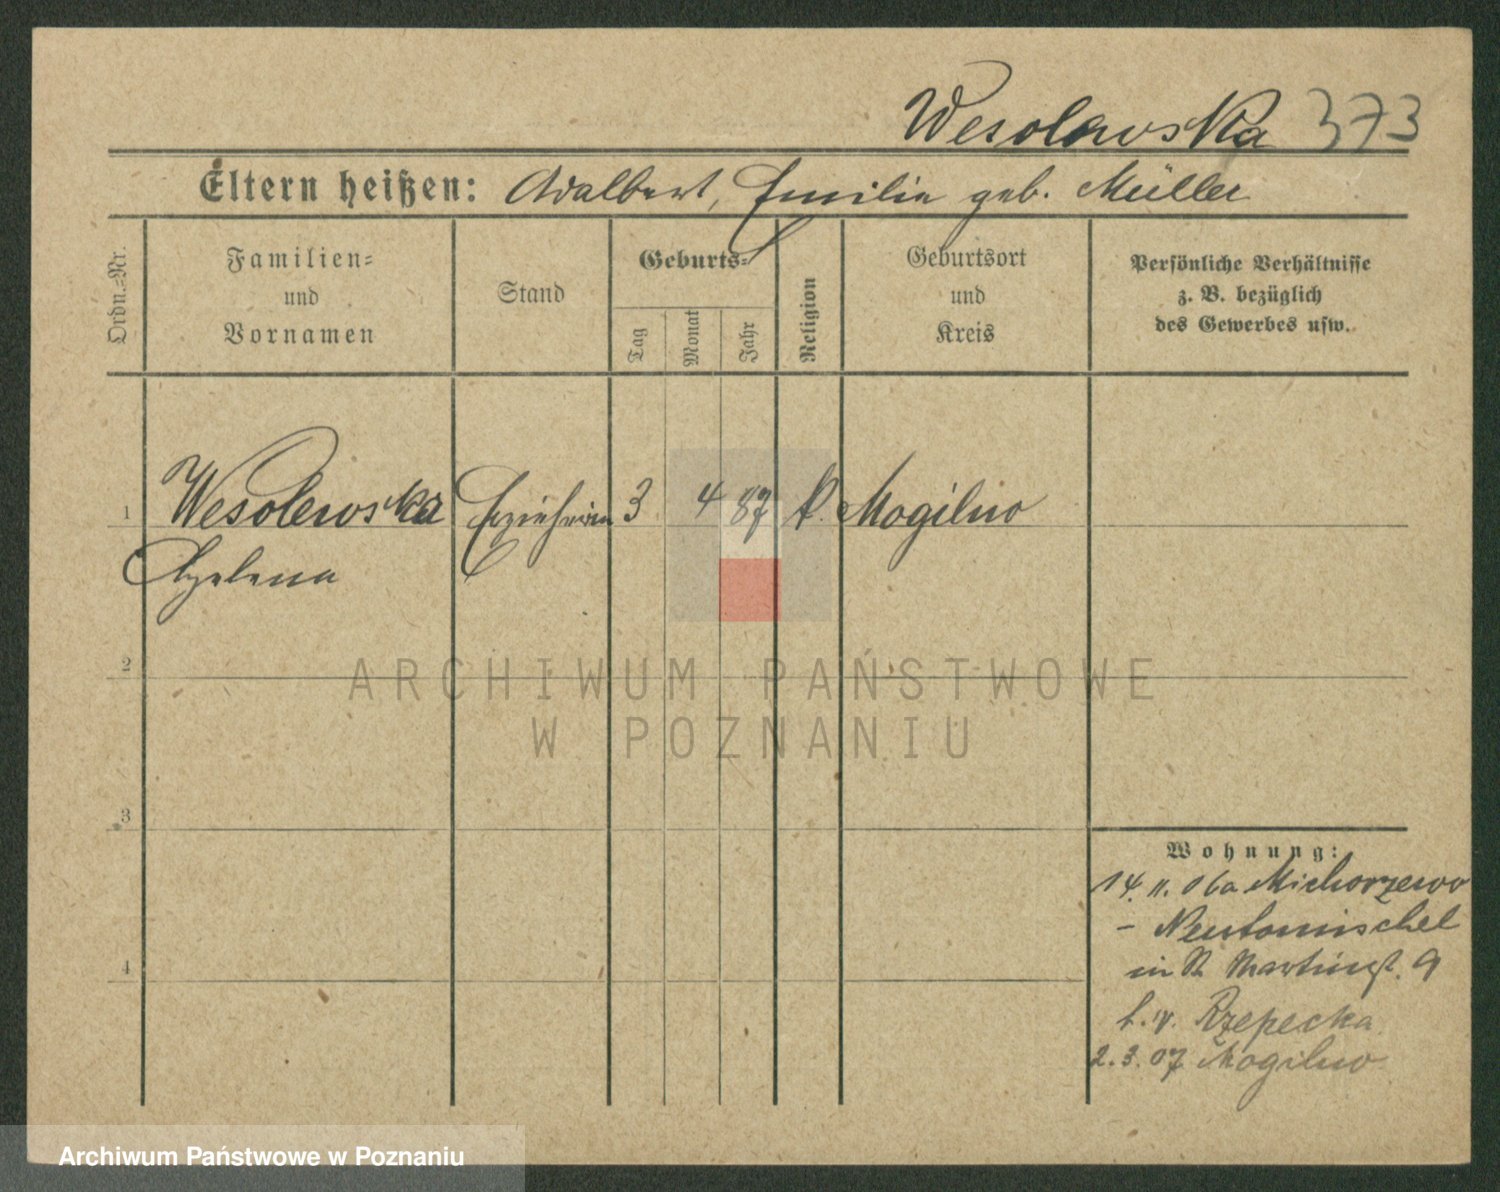 Wesolowska 373
Eltern heißen: Adalbert, Emilie geb. Müller
Ordn.=Nr.
Familien=
und
Vornamen
Stand
Geburts=
Tag
Monat
Jahr
Religion
Geburtsort
und
Kreis
Persönliche Verhältnisse
z. B. bezüglich
des Gewerbes usw.
1 Wesolewska Erzieherin 3 4 87 k. Mogilno
Helena
2
3
4
ARCHIWUM PAŃSTWOWE
W POZNANIU
Wohnung:
14. 11. 06 a Michorzewo
- Neutomischel
in St Martinst. 9
b. Rzepecka
2.3.07 Mogilno
Archiwum Państwowe w Poznaniu